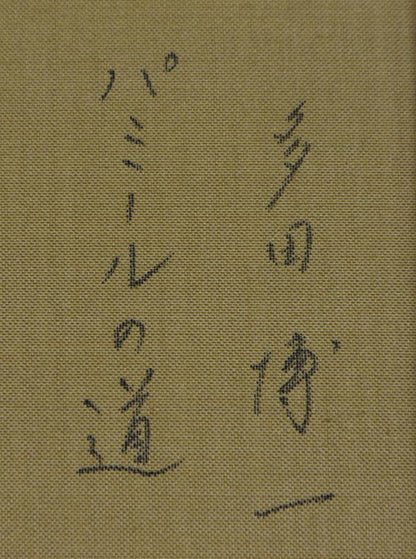 多田博一
パミールの道